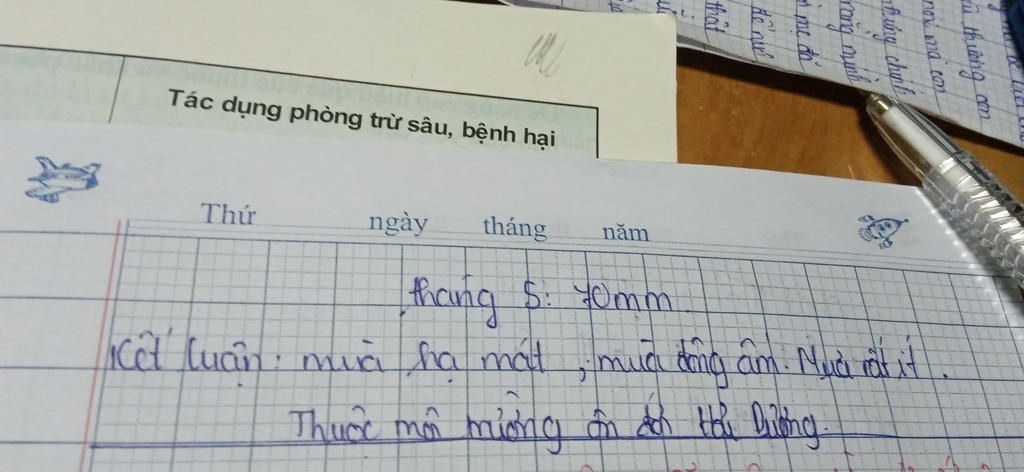 Tác dụng phòng trừ sâu, bệnh hại
Thứ ngày tháng năm
tháng 5: 70mm.
Kết luận: mùa hạ mát, mùa đông ấm. Mưa rất ít.
Thuộc môi trường ôn đới Hải Dương.